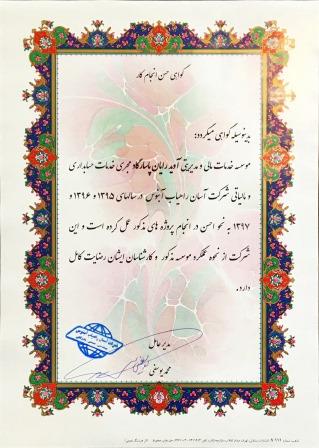 گواهی حسن انجام کار
بدینوسیله گواهی میگردد:
موسسه خدمات مالی و مدیریتی آوید رایان پاسارگاد مجری خدمات حسابداری
و مالیاتی شرکت آسان راهیاب آبنوس در سالهای ۱۳۹۵ و ۱۳۹۶ و
۱۳۹۷ به نحو احسن در انجام پروژه های مذکور عمل کرده است و این
شرکت از نحوه عملکرد موسسه مذکور و کارشناسان ایشان رضایت کامل
دارد.
مدیر عامل
محمد یوسفی